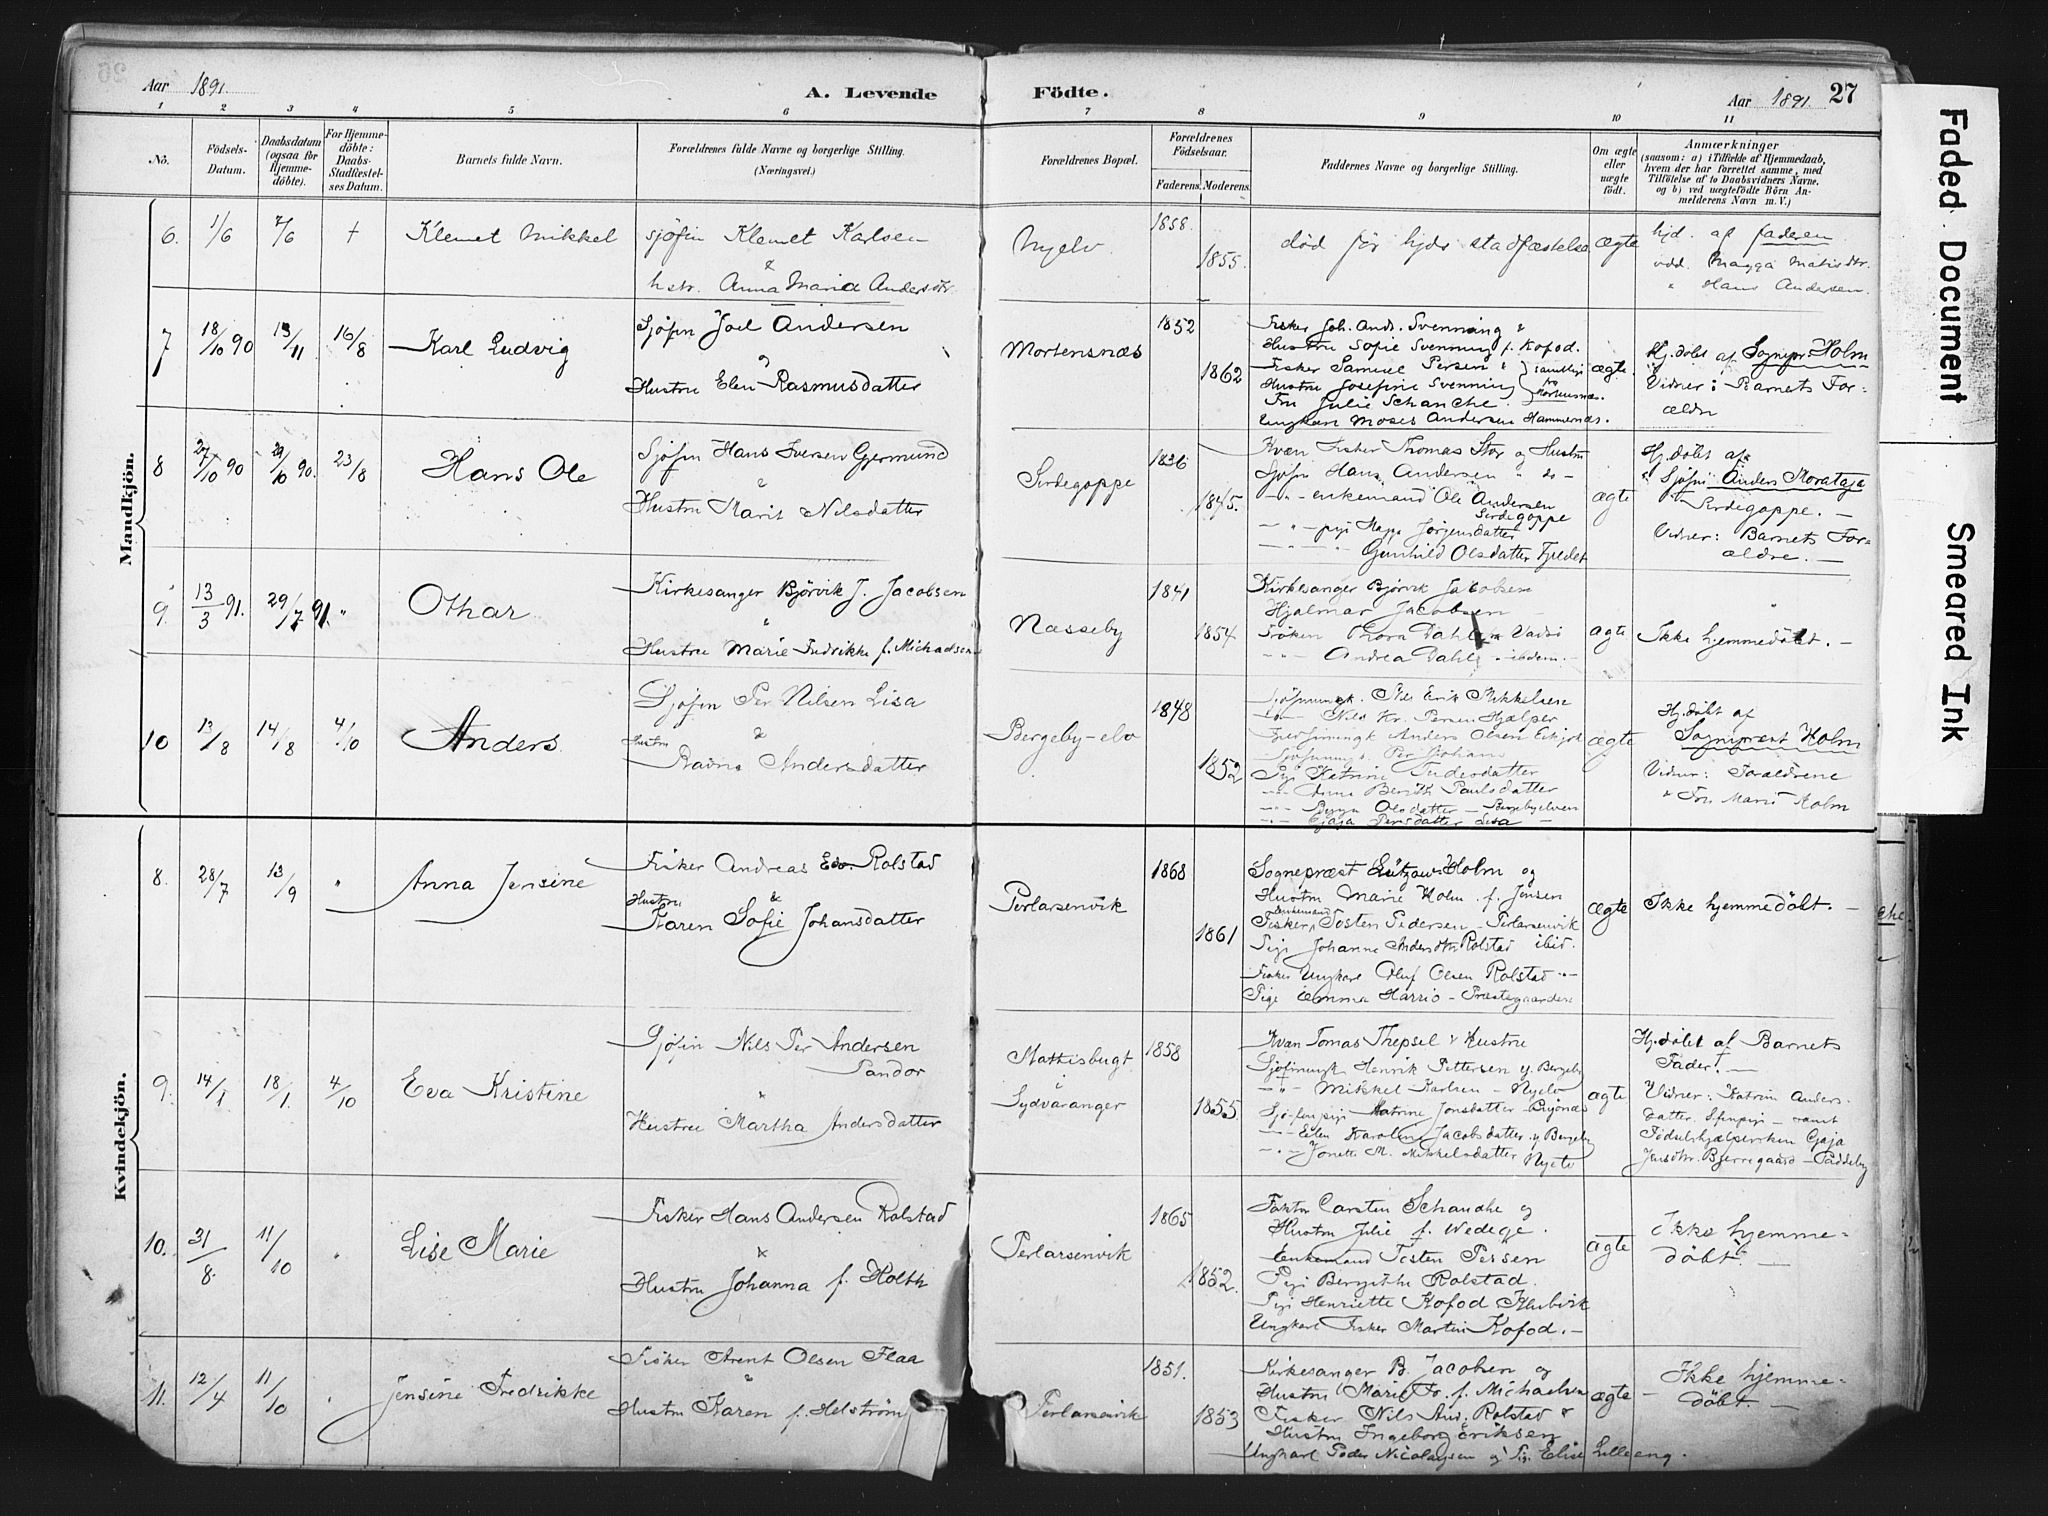 26
Aar 1891.
A. Levende
Födte.
Aar 1891.
27
1 2 3 4 5 6 7 8 9 10 11
No.
Födsels-
Datum.
Daabsdatum
(ogsaa for
Hjemme-
döbte).
For Hjemme-
döbte:
Daabs-
Stadfæstel-
ses Datum.
Barnets fulde Navn.
Forældrenes fulde Navne og borgerlige Stilling.
(Næringsvei.)
Forældrenes Bopæl.
Forældrenes
Födselsaar.
Faderens. Moderens.
Faddernes Navne og borgerlige Stilling.
Om ægte
eller
uægte
födt.
Anmærkninger
(saasom: a) i Tilfælde af Hjemmedaab,
hvem der har forrettet samme, med
Tilföielse af to Daabsvidners Navne,
og b) ved uægtefödte Börn An-
melderens Navn m. V.)
Mandkjön.
6. 1/6 7/6 + Klemet Mikkel
sjöfin Klemet Karlsen
&
hstr. Anna Maria Andersdtr.
Nyelv
1858.
1855.
död för hjds stadfæstelse
ægte
hjd. af faderen.
vdd. Magga Matisdtr.
" Hans Andersen.
7 18/10 90 13/11 16/8 Karl Ludvig
Sjöfin Joel Andersen
&
Hustru Elen Rasmusdatter
Mortensnæs
1852
1862
Fisker Joh. And. Svenning &
Hustru Sofie Svenning f. Kofod.
Fisker Samuel Persen &
Hustru Josefine Svenning
Fru Julie Schanche.
Ungkarl Moses Andersen Hammernæs.
samtlige
fra
Mortensnæs.
ægte.
Hj. döbt af Sognepr. Holm
Vidner: Barnets For-
ældre
8 27/10 90 29/10 90. 23/8 Hans Ole
Sjöfin Hans Iversen Germund
&
Hustru Marit Nilsdatter
Sirdegoppe
1836
1845.
Kvæn Fisker Thomas Stor og Hustru
Sjöfin Hans Andersen " do -
- " - enkemand Ole Andersen
Sirdegoppe
- " - pige Magga Jörgensdatter
- " - Gunhild Olsdatter Fjeldet
ægte
Hj. döbt af
Sjöfin Anders Morataja
Sirdegoppe. -
Vidner: Barnets For-
ældre. -
9. 13/3 91. 29/7 91. " Othar
Kirkesanger Björvik J. Jacobsen
&
Hustru Marie Fredrikke f. Michaelsen
Næsseby
1841
1854
Kirkesanger Björvik Jacobsen
Hjalmar Jacobsen
Fröken Thora Dahl Vadsö
- " - Andrea Dahl - ibdem. -
ægte
Ikke hjemmedöbt. -
10 13/8 14/8 4/10 Anders
Sjöfin Per Nilsen Lisa
&
Hustru
Ravna Andersdatter
Bergeby-elv
1848
1852
Sjöfinungk. Nils Erik Mikkelsen
- " - Nils Kr. Persen Hjelper
Fjeldfinungk Anders Olsen
Sjöfinungk. Per Johan
Pige Katrine Andersdatter
- " - Anne Berith Paulsdatter
- " - Berja Olsdatter - Bergebyelven
- " - Gjaja Persdatter Lisa -
ægte
Hj. döbt af
Sogneprest Holm
Vidner: Forældrene
& Fru Marie Holm
Kvindekjön.
8. 28/7 13/9 " Anna Jensine
Fisker Andreas Edv. Rolstad
&
Hustru
Karen Sofie Johansdatter
Perlarsenvik
1868
1861
Sognepræst Lützow-Holm og
Hustru Marie Holm f. Jensen
enkemand
Fisker Tosten Pedersen - Perlarsenvik
Pige Johanne Andersdtr Rolstad ibid.
Fisker Ungkarl Oluf Olsen Rolstad " -
Pige Emma Harrio - Præstegaarden
ægte
Ikke hjemmedöbt. -
9. 14/1 18/1 4/10 Eva Kristine
Sjöfin Nils Per Andersen
Pandor
&
Hustru Martha Andersdatter
Mattisbugt
Sydvaranger
1858
1855
Kvæn Tomas Thepsel & Hustru
Sjöfinungk Henrik Pettersen y. Bergeby
- " - Mikkel Karlsen - Nyelv
Sjöfinpige Katrine Jonsdatter
- " - Elen Karoline Jacobsdatter y. Bergeby
- " - Jonette M. Mikkelsdatter Nyelv
ægte
Hj. döbt af Barnets
Fader! -
Vidner: Katrine Anders-
datter. Sfinpige - samt
Födselshjælpersken Gjaja
Jensdtr. Bjerregaard - Paddeby
10. 31/8. 11/10 " Lise Marie
Fisker Hans Andersen Rolstad
&
Hustru Johanna f. Holth
Perlarsenvik
1865
1852.
Faktor Carsten Schanche og
Hustru Julie f. Wedege.
Enkemand Tosten Persen
Pige Bergithe Rolstad.
Pige Henriette Kofod Klubvik
Ungkarl Fisker Martin Kofod. -
ægte
Ikke hjemme-
döbt. -
11. 12/4 11/10 " Jensine Fredrikke
Fisker Arent Olsen Flaa
&
Hustru Karen f. Helström
Perlarsenvik
1851.
1853
Kirkesanger B. Jacobsen og
Hustru Marie Fr. f. Michaelsen
Fisker Nils And. Rolstad &
Hustru Ingeborg Eriksen
Ungkarl Peder Nicolaysen og Pi. Elise Lilleeng.
ægte -
Ikke hjemme-
döbt. -
Faded Document
Smeared Ink